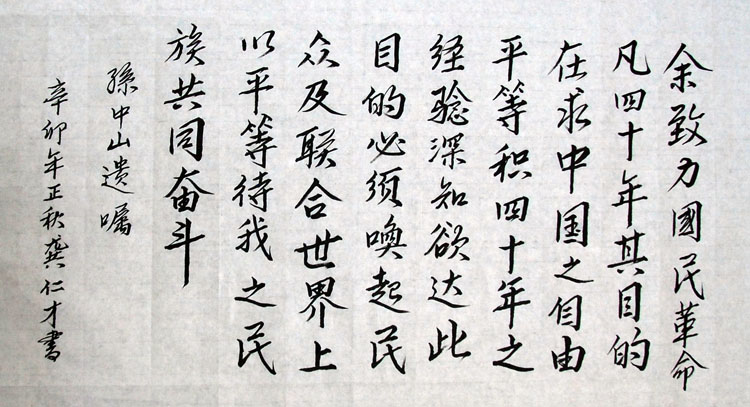 余致力國民革命
凡四十年其目的
在求中国之自由
平等积四十年之
经验深知欲达此
目的必须唤起民
众及联合世界上
以平等待我之民
族共同奋斗
孫中山遗嘱
辛卯年正秋龚仁才書